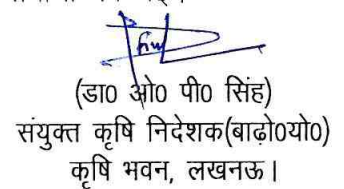 (डा० ओ० पी० सिंह)
संयुक्त कृषि निदेशक(बाढ़ो०यो०)
कृषि भवन, लखनऊ।